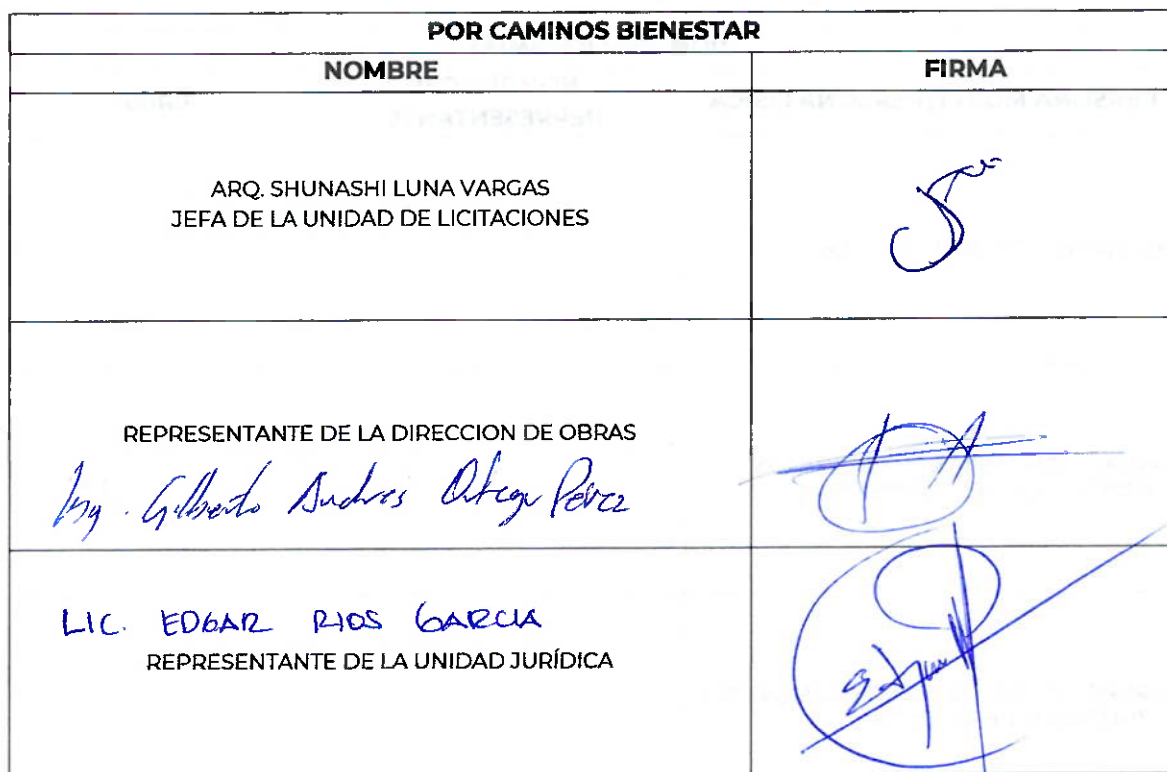 POR CAMINOS BIENESTAR
NOMBRE FIRMA
ARQ. SHUNASHI LUNA VARGAS
JEFA DE LA UNIDAD DE LICITACIONES
REPRESENTANTE DE LA DIRECCION DE OBRAS
Ing. Gilberto Andres Ortega Pérez
LIC. EDGAR RIOS GARCIA
REPRESENTANTE DE LA UNIDAD JURÍDICA